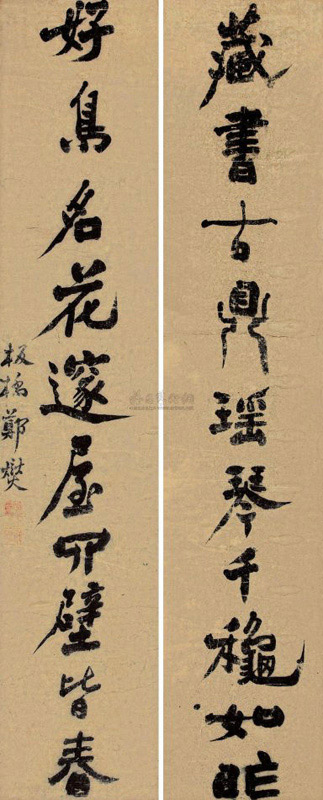 藏書古鼎瑶琴千穐如昨
好鳥名花邃屋四壁皆春
板橋鄭燮